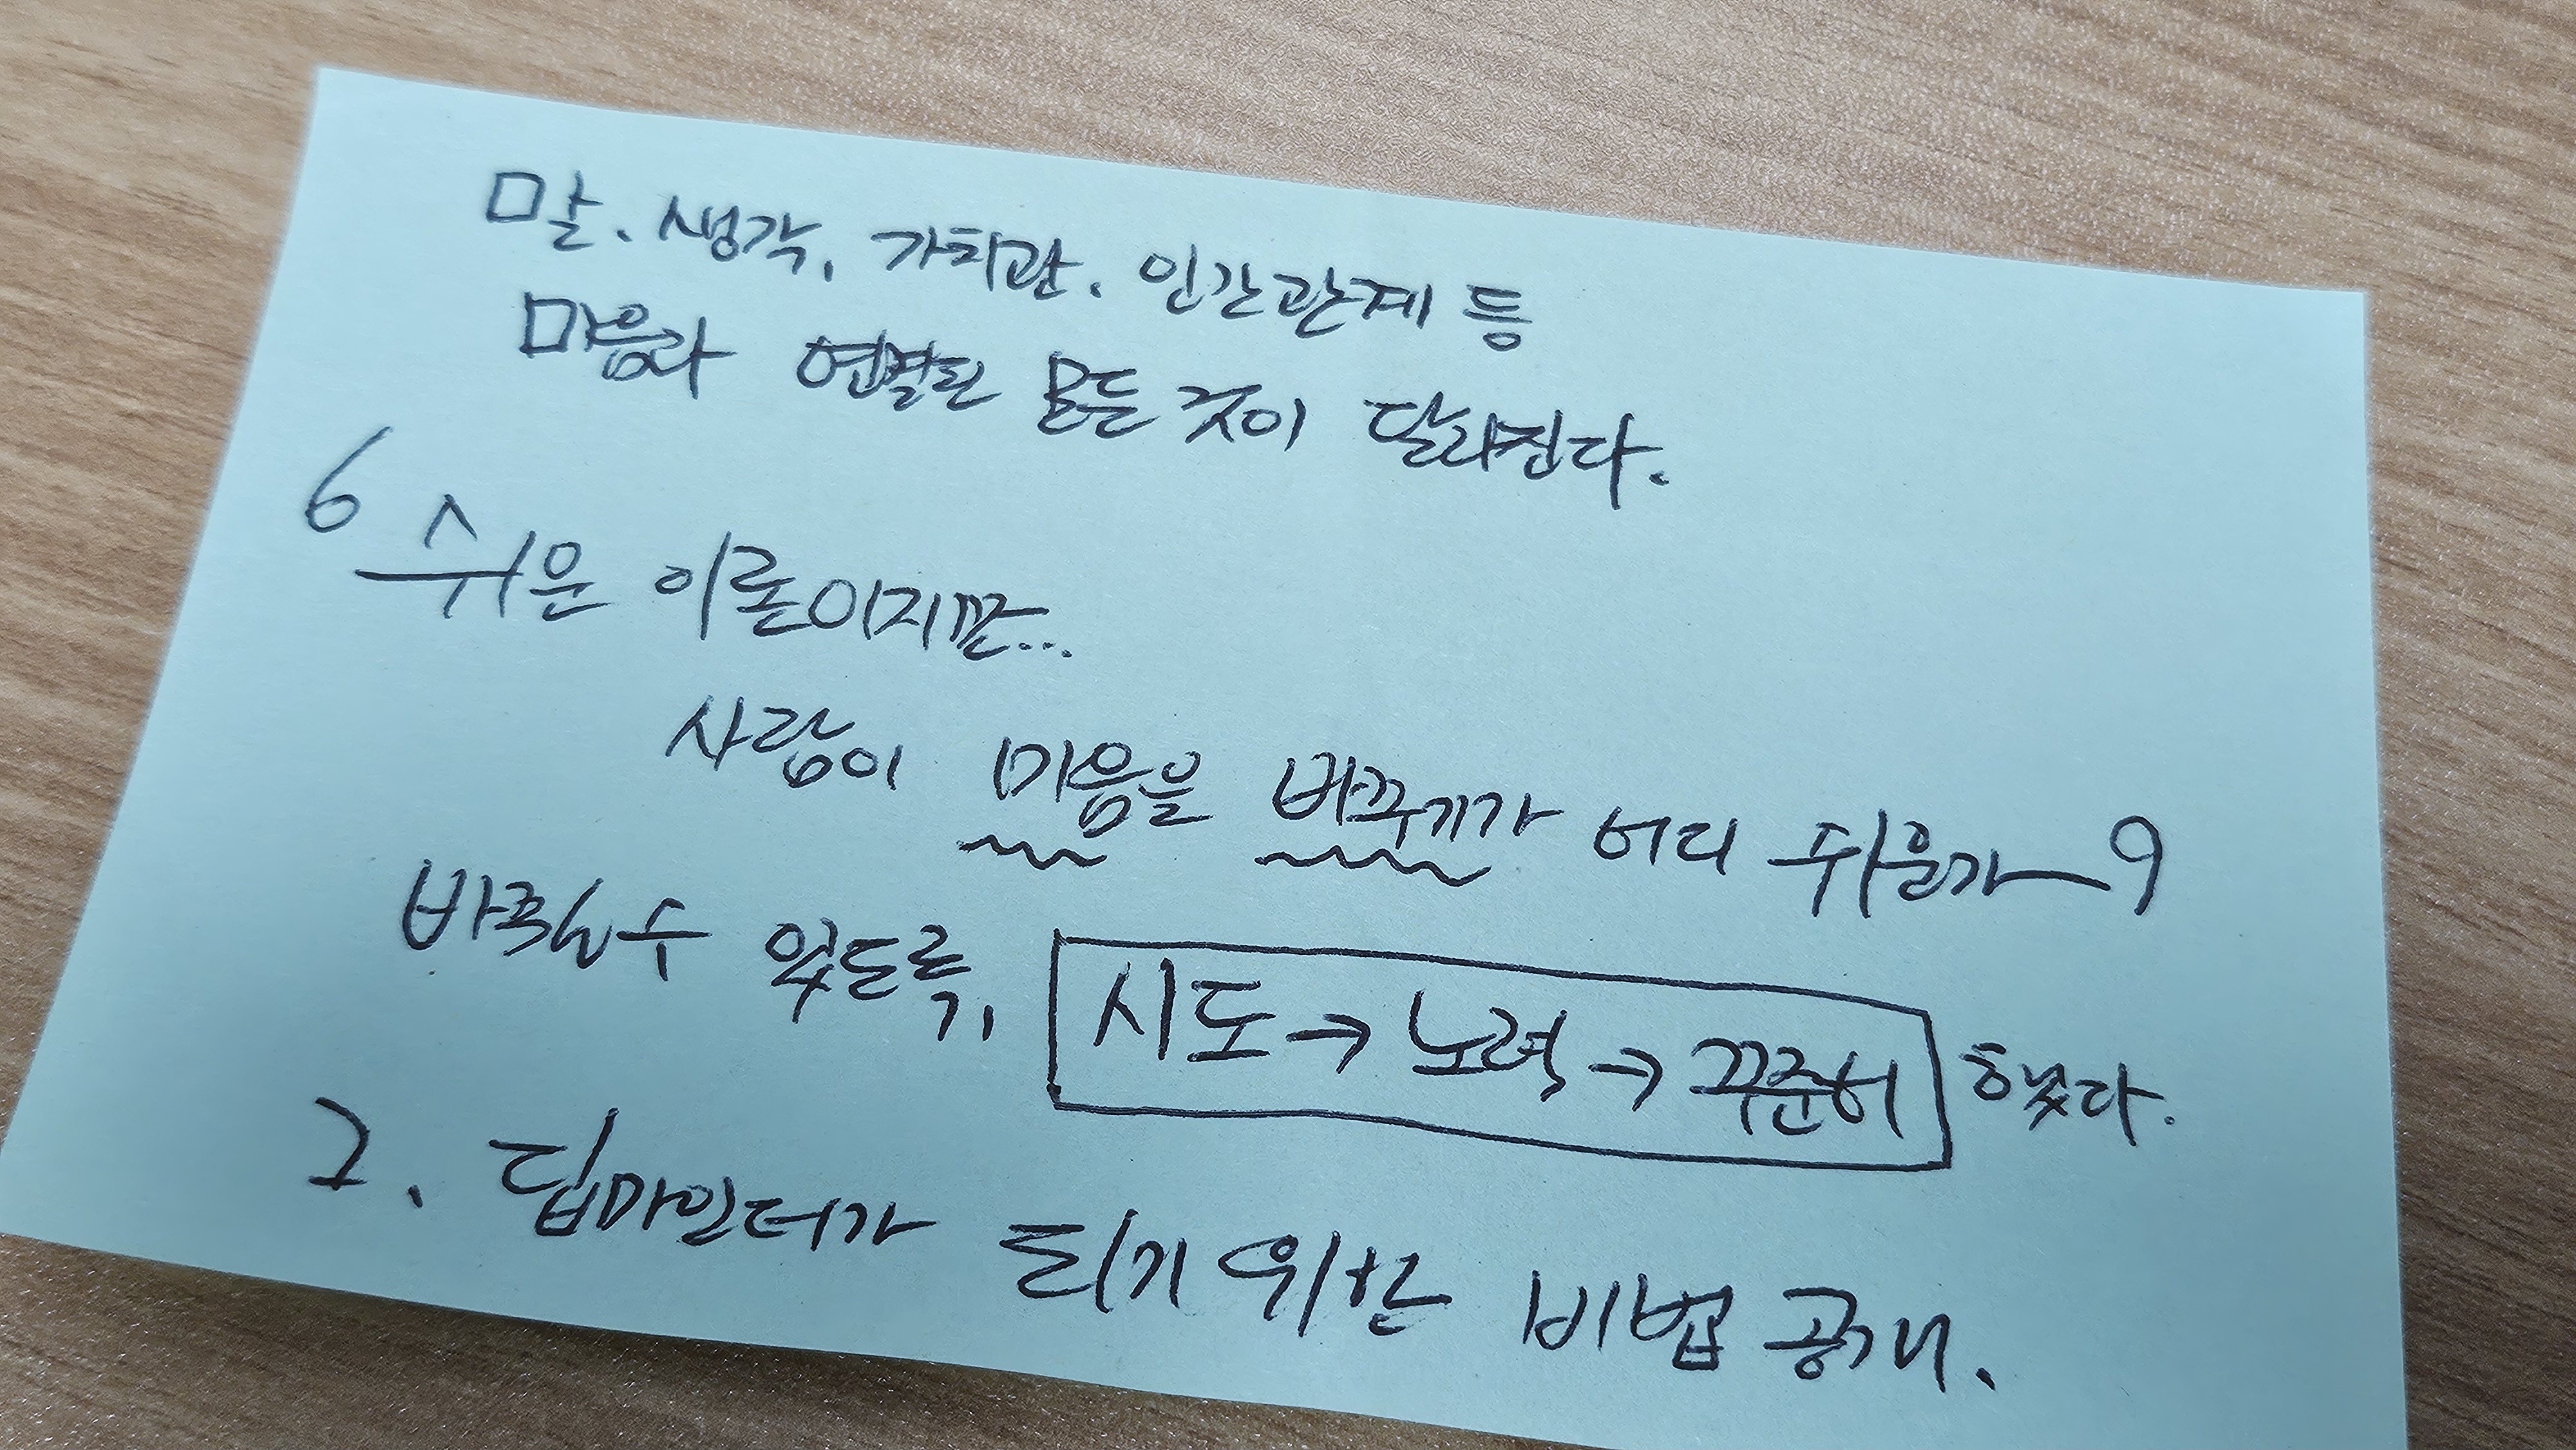 말, 생각, 가치관, 인간관계 등
마음과 연결된 모든 것이 달라진다.
6 쉬운 이론이지만...
사람이 마음을 바꾸기가 어디 쉬운가
바뀔 수 있도록, 시도→노력→꾸준히 했다.
2. 딥마인더가 되기 위한 비법 공개.